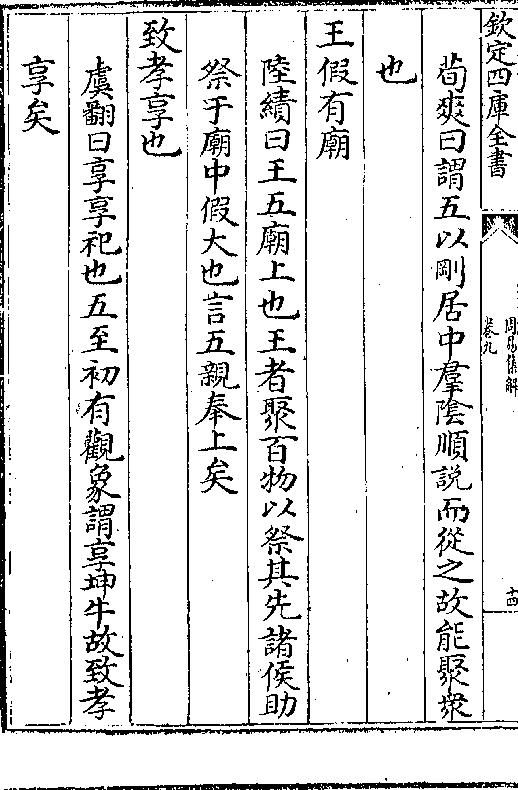 欽定四庫全書
周易集解
卷九
十四
荀爽曰謂五以剛居中羣陰順説而從之故能聚衆
也
王假有廟
陸績曰王五廟上也王者聚百物以祭其先諸侯助
祭于廟中假大也言五親奉上矣
致孝享也
虞翻曰享享祀也五至初有觀象謂享坤牛故致孝
享矣